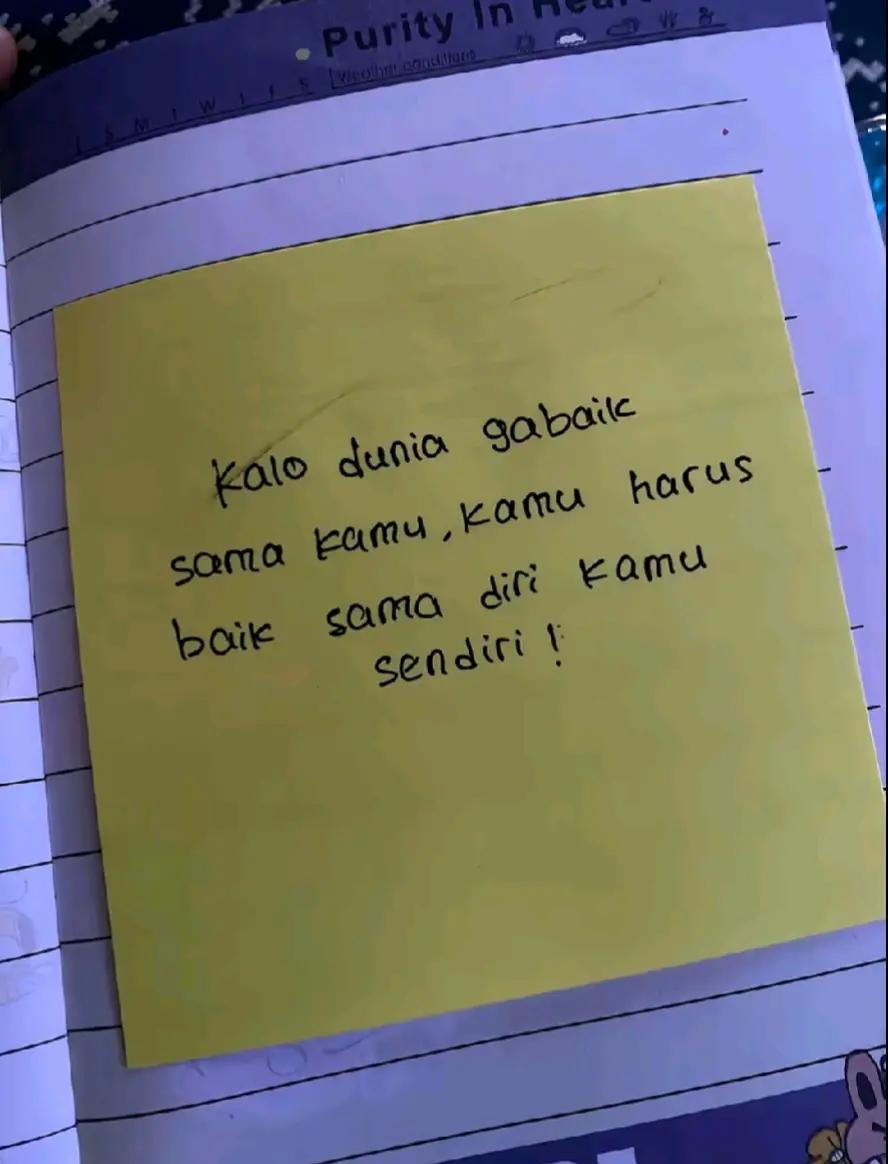 Purity In
S M T W T F S Weather conditions
Kalo dunia gabaik
sama kamu, kamu harus
baik sama diri kamu
sendiri!